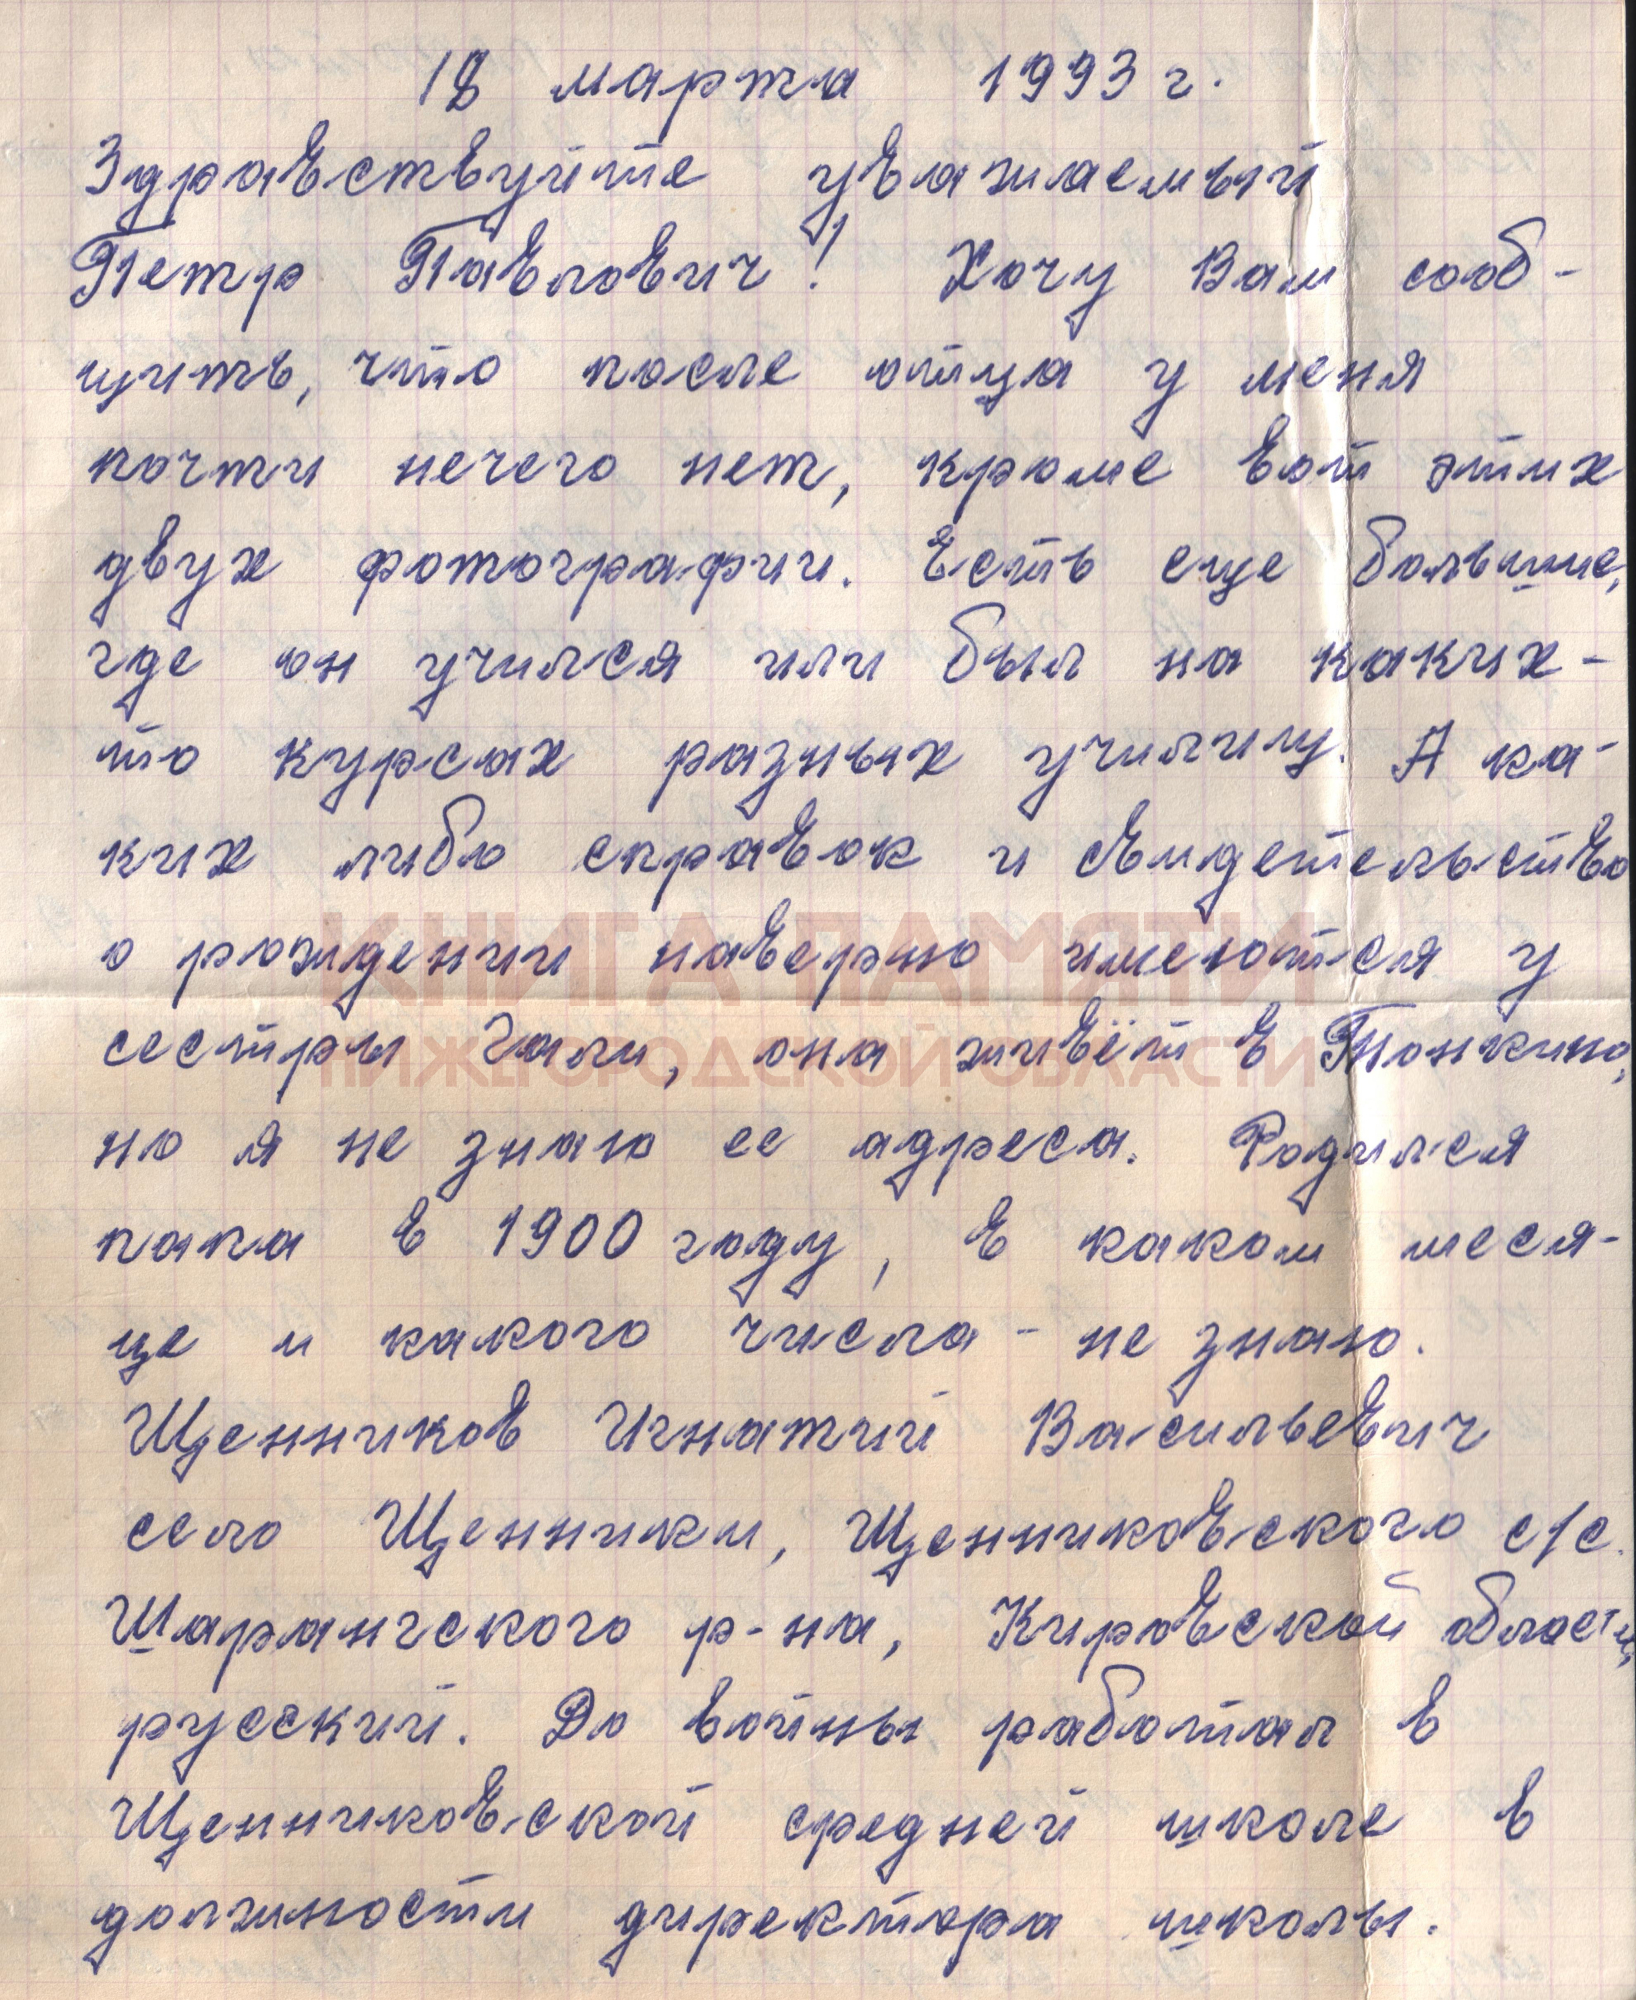 18 марта 1993 г.
Здравствуйте уважаемый
Петр Павлович! Хочу Вам сооб-
щить, что после отца у меня
почти нечего нет, кроме вот этих
двух фотографии. Есть еще большие,
где он учился или был на каких-
то курсах разных училищ. А ка-
ких либо справок и свидетельство
о рождении наверно имеются у
КНИГА ПАМЯТИ
сестры Гали, она живёт в Тонкино,
НИЖЕГОРОДСКОЙ ОБЛАСТИ
но я не знаю ее адреса. Родился
папа в 1900 году, в каком меся-
це и какого числа - не знаю.
Щенников Игнатий Васильевич
село Щенники, Щенниковского с/с.
Шарангского р-на, Кировской области,
русский. До войны работал в
Щенниковской средней школе в
должности директора школы.